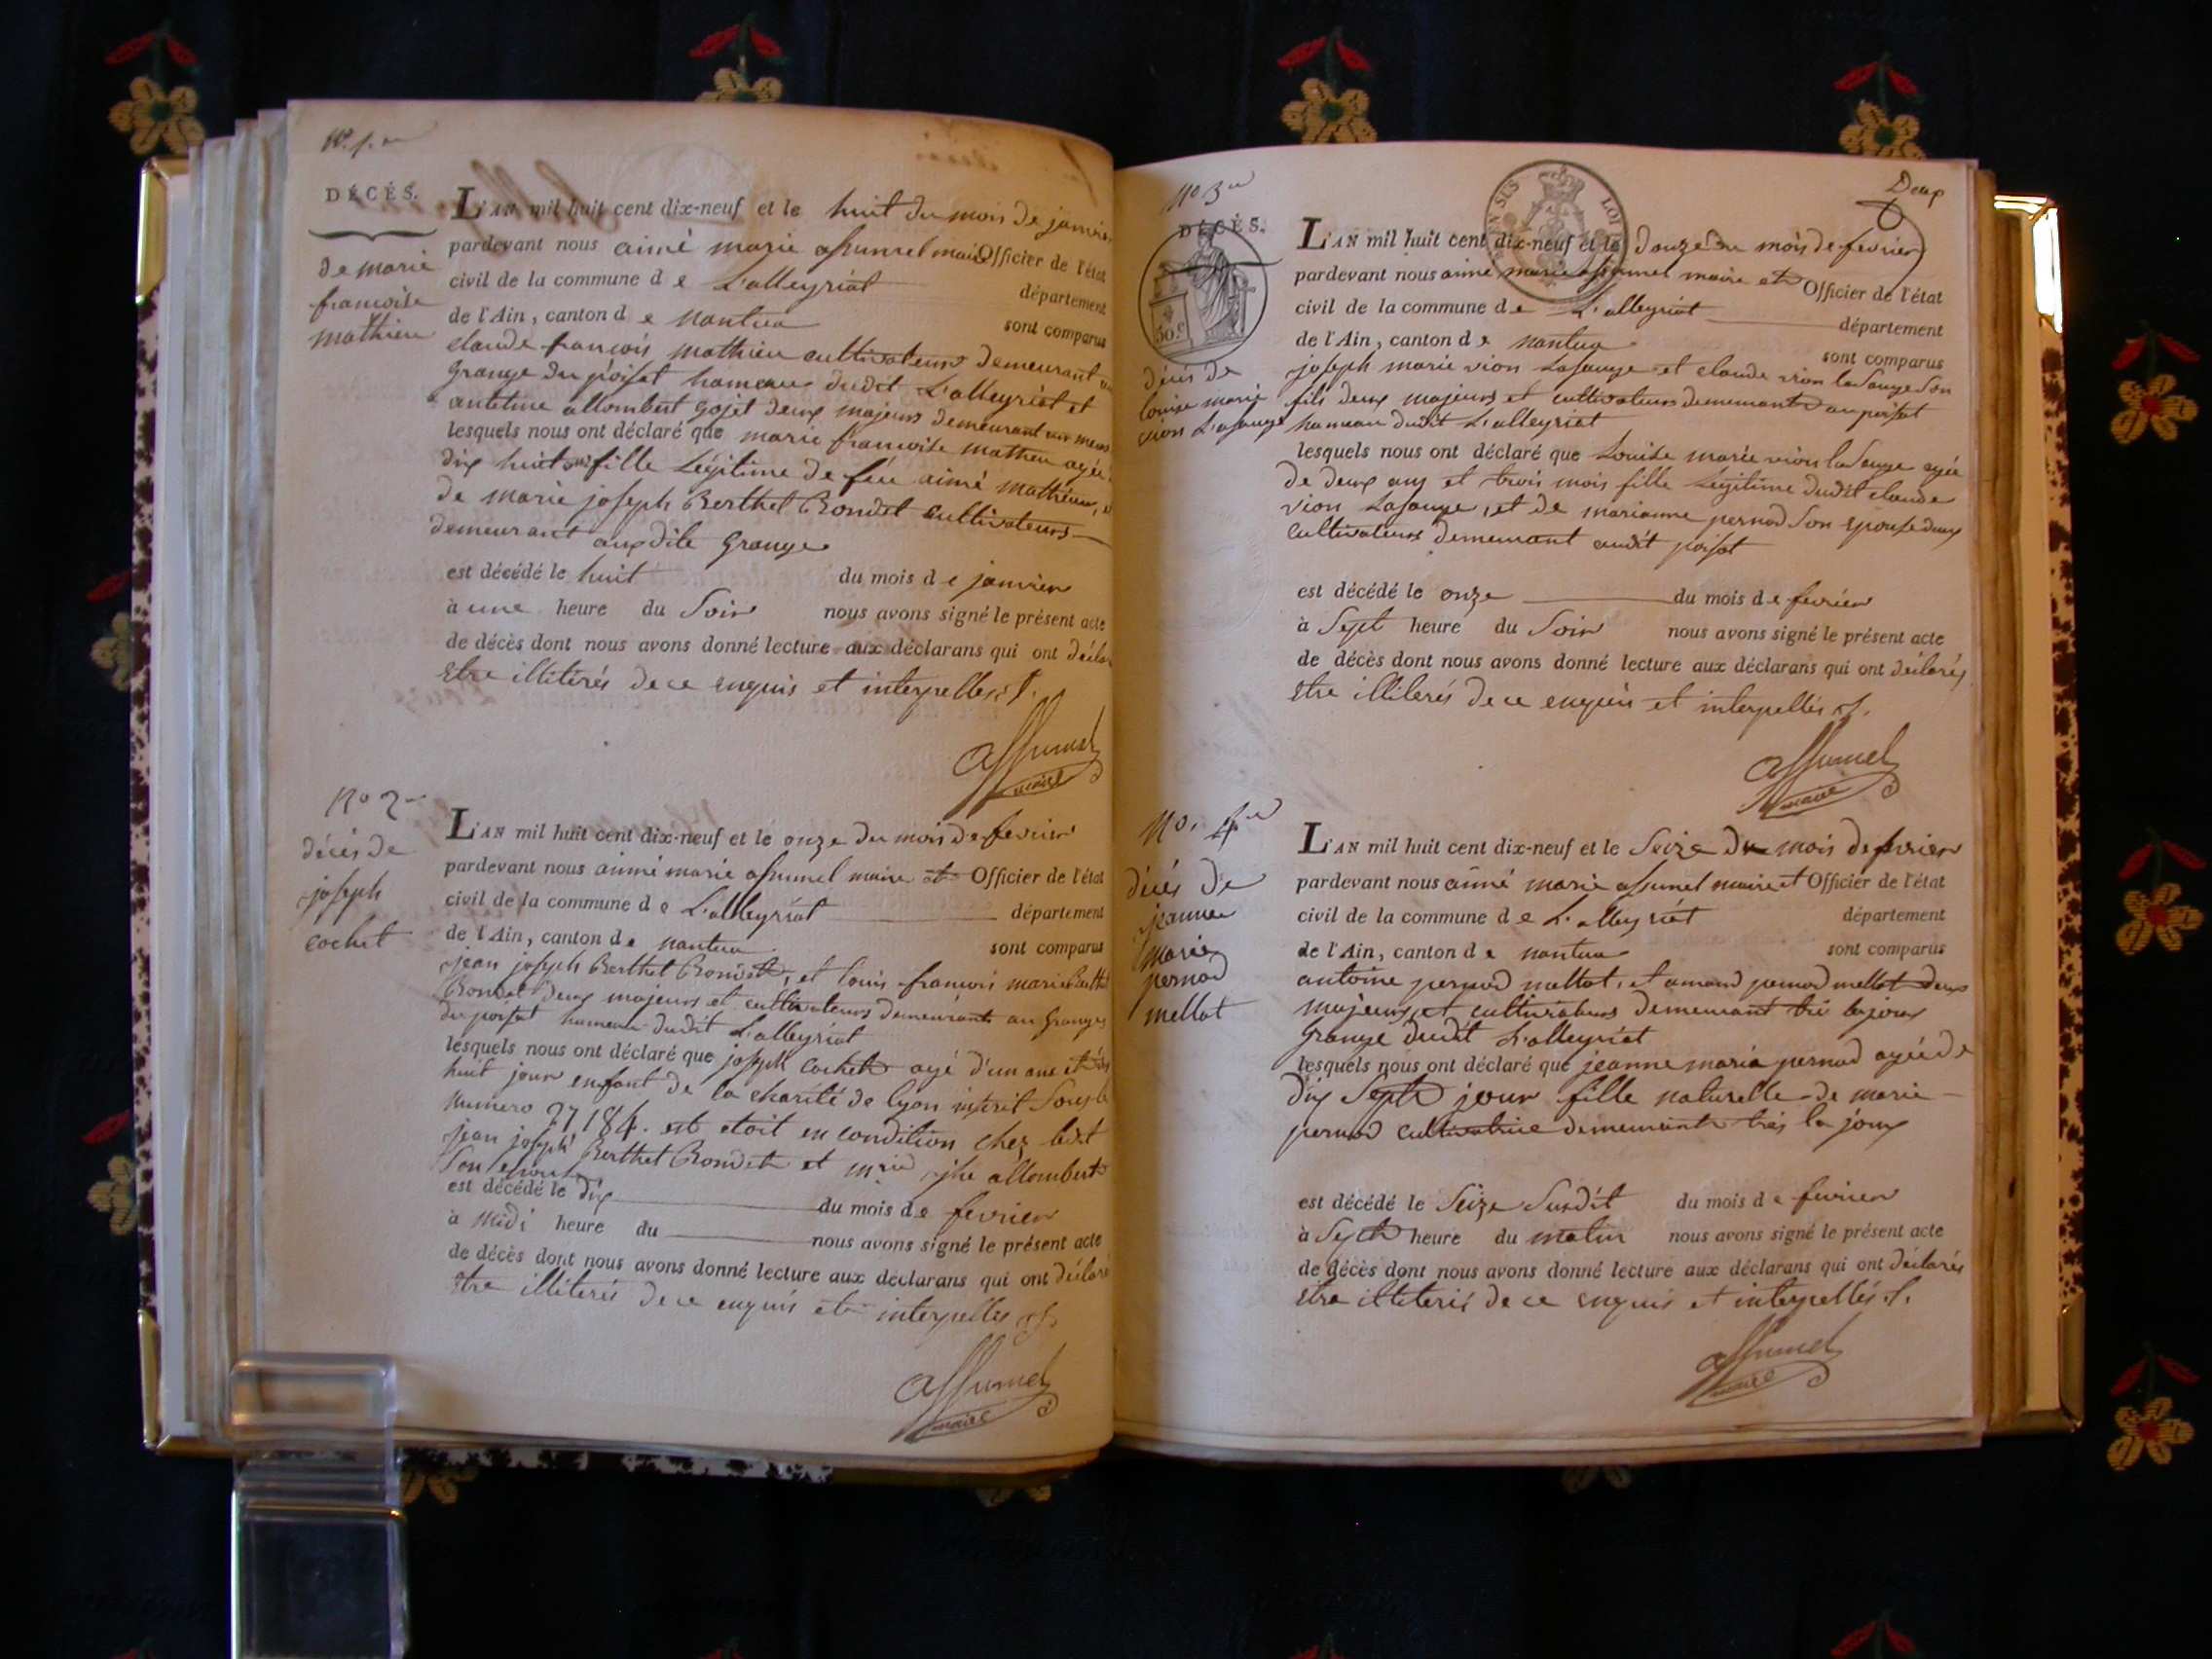 No. 1.er
DÉCÉS.
de marie
francoise
mathieu
L'AN mil huit cent dix-neuf et le huit du mois de janvier
pardevant nous aimé marie assumel maire Officier de l'état
civil de la commune d e L'alleyriat département
de l'Ain, canton d e nantua sont comparus
claude francois mathieu cultivateur demeurant
Grange du poisat hameau dudit L'alleyriat et
antelme allombert gojet deux majeurs demeurant au meme
lesquels nous ont déclaré que marie francoise mathieu agée
dix huit ans fille Légitime de féu aimé mathieu, et
de marie joseph Berthet Bondet cultivateurs
demeurant auxdite Grange
est décédé le huit du mois d e janvier
à une heure du Soir nous avons signé le présent acte
de décès dont nous avons donné lecture aux déclarans qui ont déclaré
Etre illitérés de ce enquis et interpelles
assumel
maire
No 2
décès de
joseph
cochet
L'AN mil huit cent dix-neuf et le onze du mois de fevrier
pardevant nous aimé marie assumel maire et Officier de l'état
civil de la commune d e L'alleyriat département
de l'Ain, canton d e nantua sont comparus
jean joseph Berthet Bondet, et louis francois marie Berthet
Bondet deux majeurs et cultivateurs demeurants au Granges
du poisat hameau dudit L'alleyriat
lesquels nous ont déclaré que joseph cochet agé d'un ans et
huit jour enfant de la charité de lyon inscrit Sous le
numero 27184. est etoit en condition chez ledit
jean joseph Berthet Bondet et marie jhe allombert
Son epouse
est décédé le dix du mois d e fevrier
à midi heure du nous avons signé le présent acte
de décès dont nous avons donné lecture aux déclarans qui ont déclaré
Etre illiterés de ce enquis et interpelles
assumel
maire
No 3
Deux
DÉCÉS.
50 c
décés de
louise marie
vion Lasauge
L'AN mil huit cent dix-neuf et le douze du mois de fevrier
pardevant nous aimé marie assumel maire et Officier de l'état
civil de la commune d e L'alleyriat département
de l'Ain, canton d e nantua sont comparus
joseph marie vion Lasauge et claude vion laSauge Son
fils deux majeurs et cultivateurs demeurants au poisat
hameau dudit L'alleyriat
lesquels nous ont déclaré que Louise marie vion laSauge agée
de deux ans et trois mois fille Légitime dudit claude
vion Lasauge, et de marianne pernod Son epouse deux
cultivateurs demeurant audit poisat
est décédé le onze du mois d e fevrier
à Sept heure du Soir nous avons signé le présent acte
de décès dont nous avons donné lecture aux déclarans qui ont déclarés
Etre illiterés de ce enquis et interpellés
assumel
maire
No. 4
décés de
jeanne
marie
pernod
mellot
L'AN mil huit cent dix-neuf et le Seize du mois de fevrier
pardevant nous aimé marie assumel maire et Officier de l'état
civil de la commune d e L'alleyriat département
de l'Ain, canton d e nantua sont comparus
antoine pernod mellot, et amand pernod mellot deux
majeurs, et cultivateurs demeurant tré la joux
Grange dudit L'alleyriat
lesquels nous ont déclaré que jeanne maria pernod agée de
dix Sept jour fille naturelle de marie
pernod cultivatrice demeurante trés la joux
est décédé le Seize Susdit du mois d e fevrier
à Sept heure du matin nous avons signé le présent acte
de décès dont nous avons donné lecture aux déclarans qui ont déclarés
Etre illiterés de ce enquis et interpellés
assumel
maire